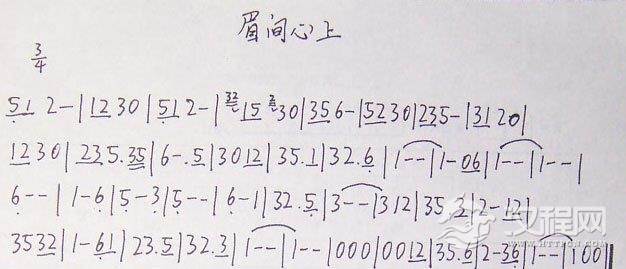 眉间心上
3/4
51 2-|12 30|51 2-|32 15 3 30|35 6-|52 30|235-|31 20|
12 30|235.35|6-.5|3012|35.1|32.6|1--|1-06|1--|1--|
6--|1-6|5-3|5--|6-1|32.5|3--|312|35.2|2-12|
3532|1-61|23.5|32.3|1--|1--|000|0012|35.6|2-36|1--|100‖
汉程网
WWW.HTTPCN.COM